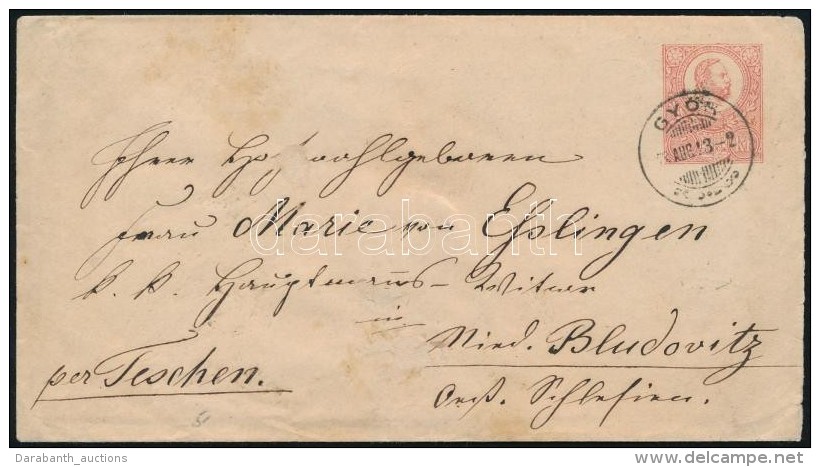 GYŐR
AUG.13-2
Ihrer Hochwohlgeboren
Frau Marie von Eßlingen
k. k. Hauptmanns-Witwe
in
Nied. Bludovitz
per Teschen.
Oest. Schlesien.
darabanth
Darabanth_auctions
www.delcampe.net